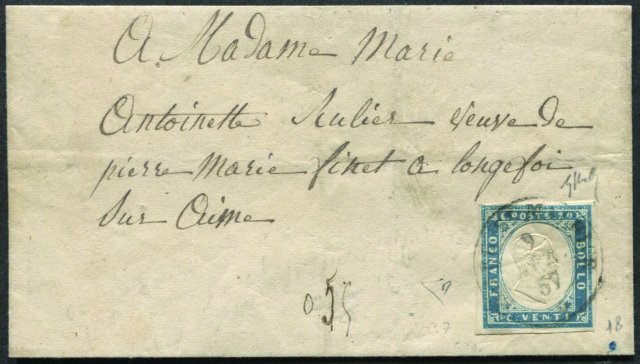 A Madame Marie
Antoinette Rulier veuve de
pierre Marie finet a longefoi
Sur Aime
C. POSTE 20
FRANCO
BOLLO
C. VENTI
18